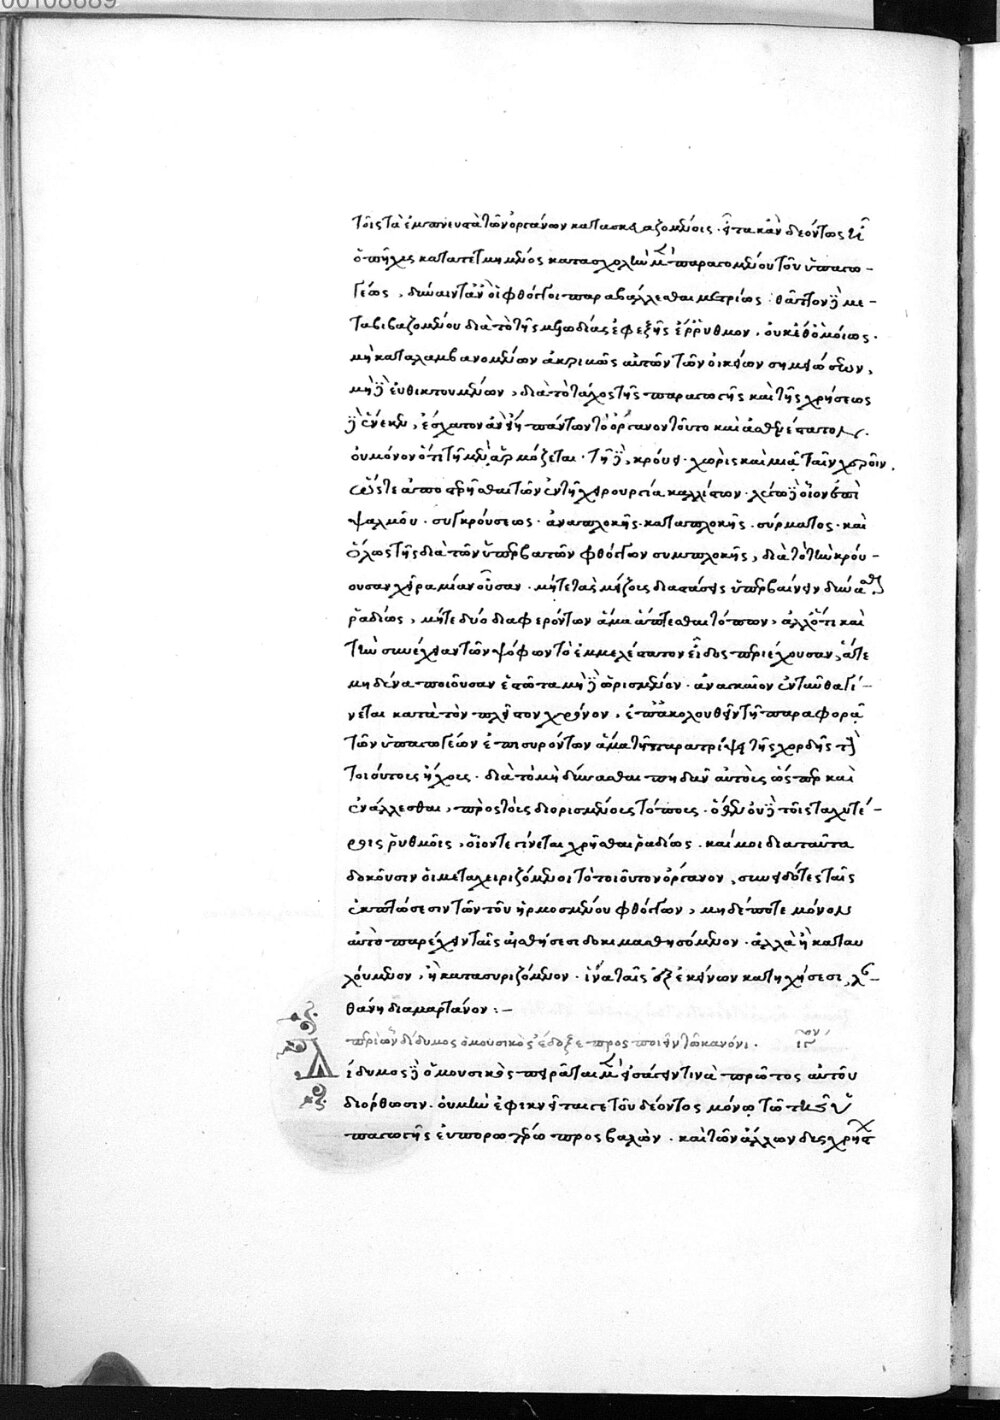 τοῖς τὰ ἐμπνευστὰ τῶν ὀργάνων κατασκευαζομένοις. εἶτα κἂν δεόντως εἶ
ὁ πῆχυς κατατετμημένος κατασχολὴν μὲν παραγομένου τοῦ ὑπαγω-
γέως, δύναιντ' ἂν οἱ φθόγγοι παραβάλλεσθαι μετρίως· θᾶττον δὲ με-
ταβιβαζομένου διὰ τὸ τῆς μελωδίας ἐφεξῆς ἔρρυθμον, οὐκέθ' ὁμοίως·
μὴ καταλαμβανομένων ἀκριβῶς αὐτῶν τῶν οἰκείων σημειώσεων,
μὴ δὲ εὐθικτουμένων, διὰ τὸ τάχος τῆς παραγωγῆς καὶ τῆς χρήσεως
δὲ ἕνεκεν, ἔσχατον ἂν εἴη πάντων τὸ ὄργανον τοῦτο καὶ ἀσθενέστατον.
οὐ μόνον ὅτι τῇ μὲν ἁρμόζεται· τῇ δὲ, κρούει· χωρὶς καὶ μιᾷ ταῖν χεροῖν,
ὥστε ἀποστερῆσθαι τῶν ἐν τῇ χειρουργία καλλίστων· λέγω δὲ οἷον ἐπι
ψαλμοῦ· συγκρούσεως· ἀναπλοκῆς· καταπλοκῆς· σύρματος· καὶ
ὅλως τῆς διὰ τῶν ὑπερβατῶν φθόγγων συμπλοκῆς, διὰ τὸ τὴν κρού-
ουσαν χεῖρα μίαν οὖσαν· μήτε τὰς μείζοις διαστάσεις ὑπερβαίνειν δύνασθαι
ῥαδίως, μήτε δύο διαφερόντων ἅμα ἅπτεσθαι τόπων, ἀλλ' ὅτι καὶ
τὴν συνέχειαν τῶν ψόφων τὸ ἐμμελέστατον εἶδος περιέχουσαν, ἅτε
μηδένα ποιοῦσαν ἑστῶτα μὴ δὲ ὡρισμένον· ἀναγκαῖον ἐνταῦθα γί-
νεται κατὰ τὸν πλεῖστον χρόνον, ἐπακολουθεῖν τῇ παραφορᾷ
τῶν ὑπαγωγέων ἐπισυρόντων ἅμα τῇ παρατρίψει τῆς χορδῆς τοὺς
τοιούτους ἤχους· διὰ τὸ μὴ δύνασθαι πηδᾶν αὐτοὺς ὥσπερ καὶ
ἐνάλλεσθαι, πρὸς τοὺς διορισμένους τόπους· ὅθεν οὐ δὲ τοῖς ταχυτέ-
ροις ῥυθμοῖς, οἷόν τε γίνεται χρῆσθαι ῥαδίως. καί μοι διαταῦτα
δοκοῦσιν οἱ μεταχειριζόμενοι τὸ τοιοῦτον ὄργανον, συνειδότες ταῖς
ἐκπτώσεσιν τῶν τοῦ ἡρμοσμένου φθόγγων, μηδέποτε μόνον
αὐτὸ παρέχειν ταῖς αἰσθήσεσι δοκιμασθησόμενον· ἀλλὰ ἢ καταυ
λούμενον, ἢ κατασυριζόμενον· ἵνα ταῖς ἐξ ἐκείνων κατηχήσεσι, λαν-
θάνη διαμαρτάνον :-
περὶ ὧν δίδυμος ὁ μουσικὸς ἔδοξε προσποιεῖν τῶ κανόνι. ιγον
Δίδυμος δὲ ὁ μουσικὸς πειρᾶται μὲν εἰσάγειν τινὰ πρῶτος αὐτοῦ
διόρθωσιν. οὐ μὴν ἐφικνεῖται γε τοῦ δέοντος μόνω τῶ τῆς ὑ
παγωγῆς εὐπορωτέρω προσβαλὼν. καὶ τῶν ἄλλων δυσχρησ